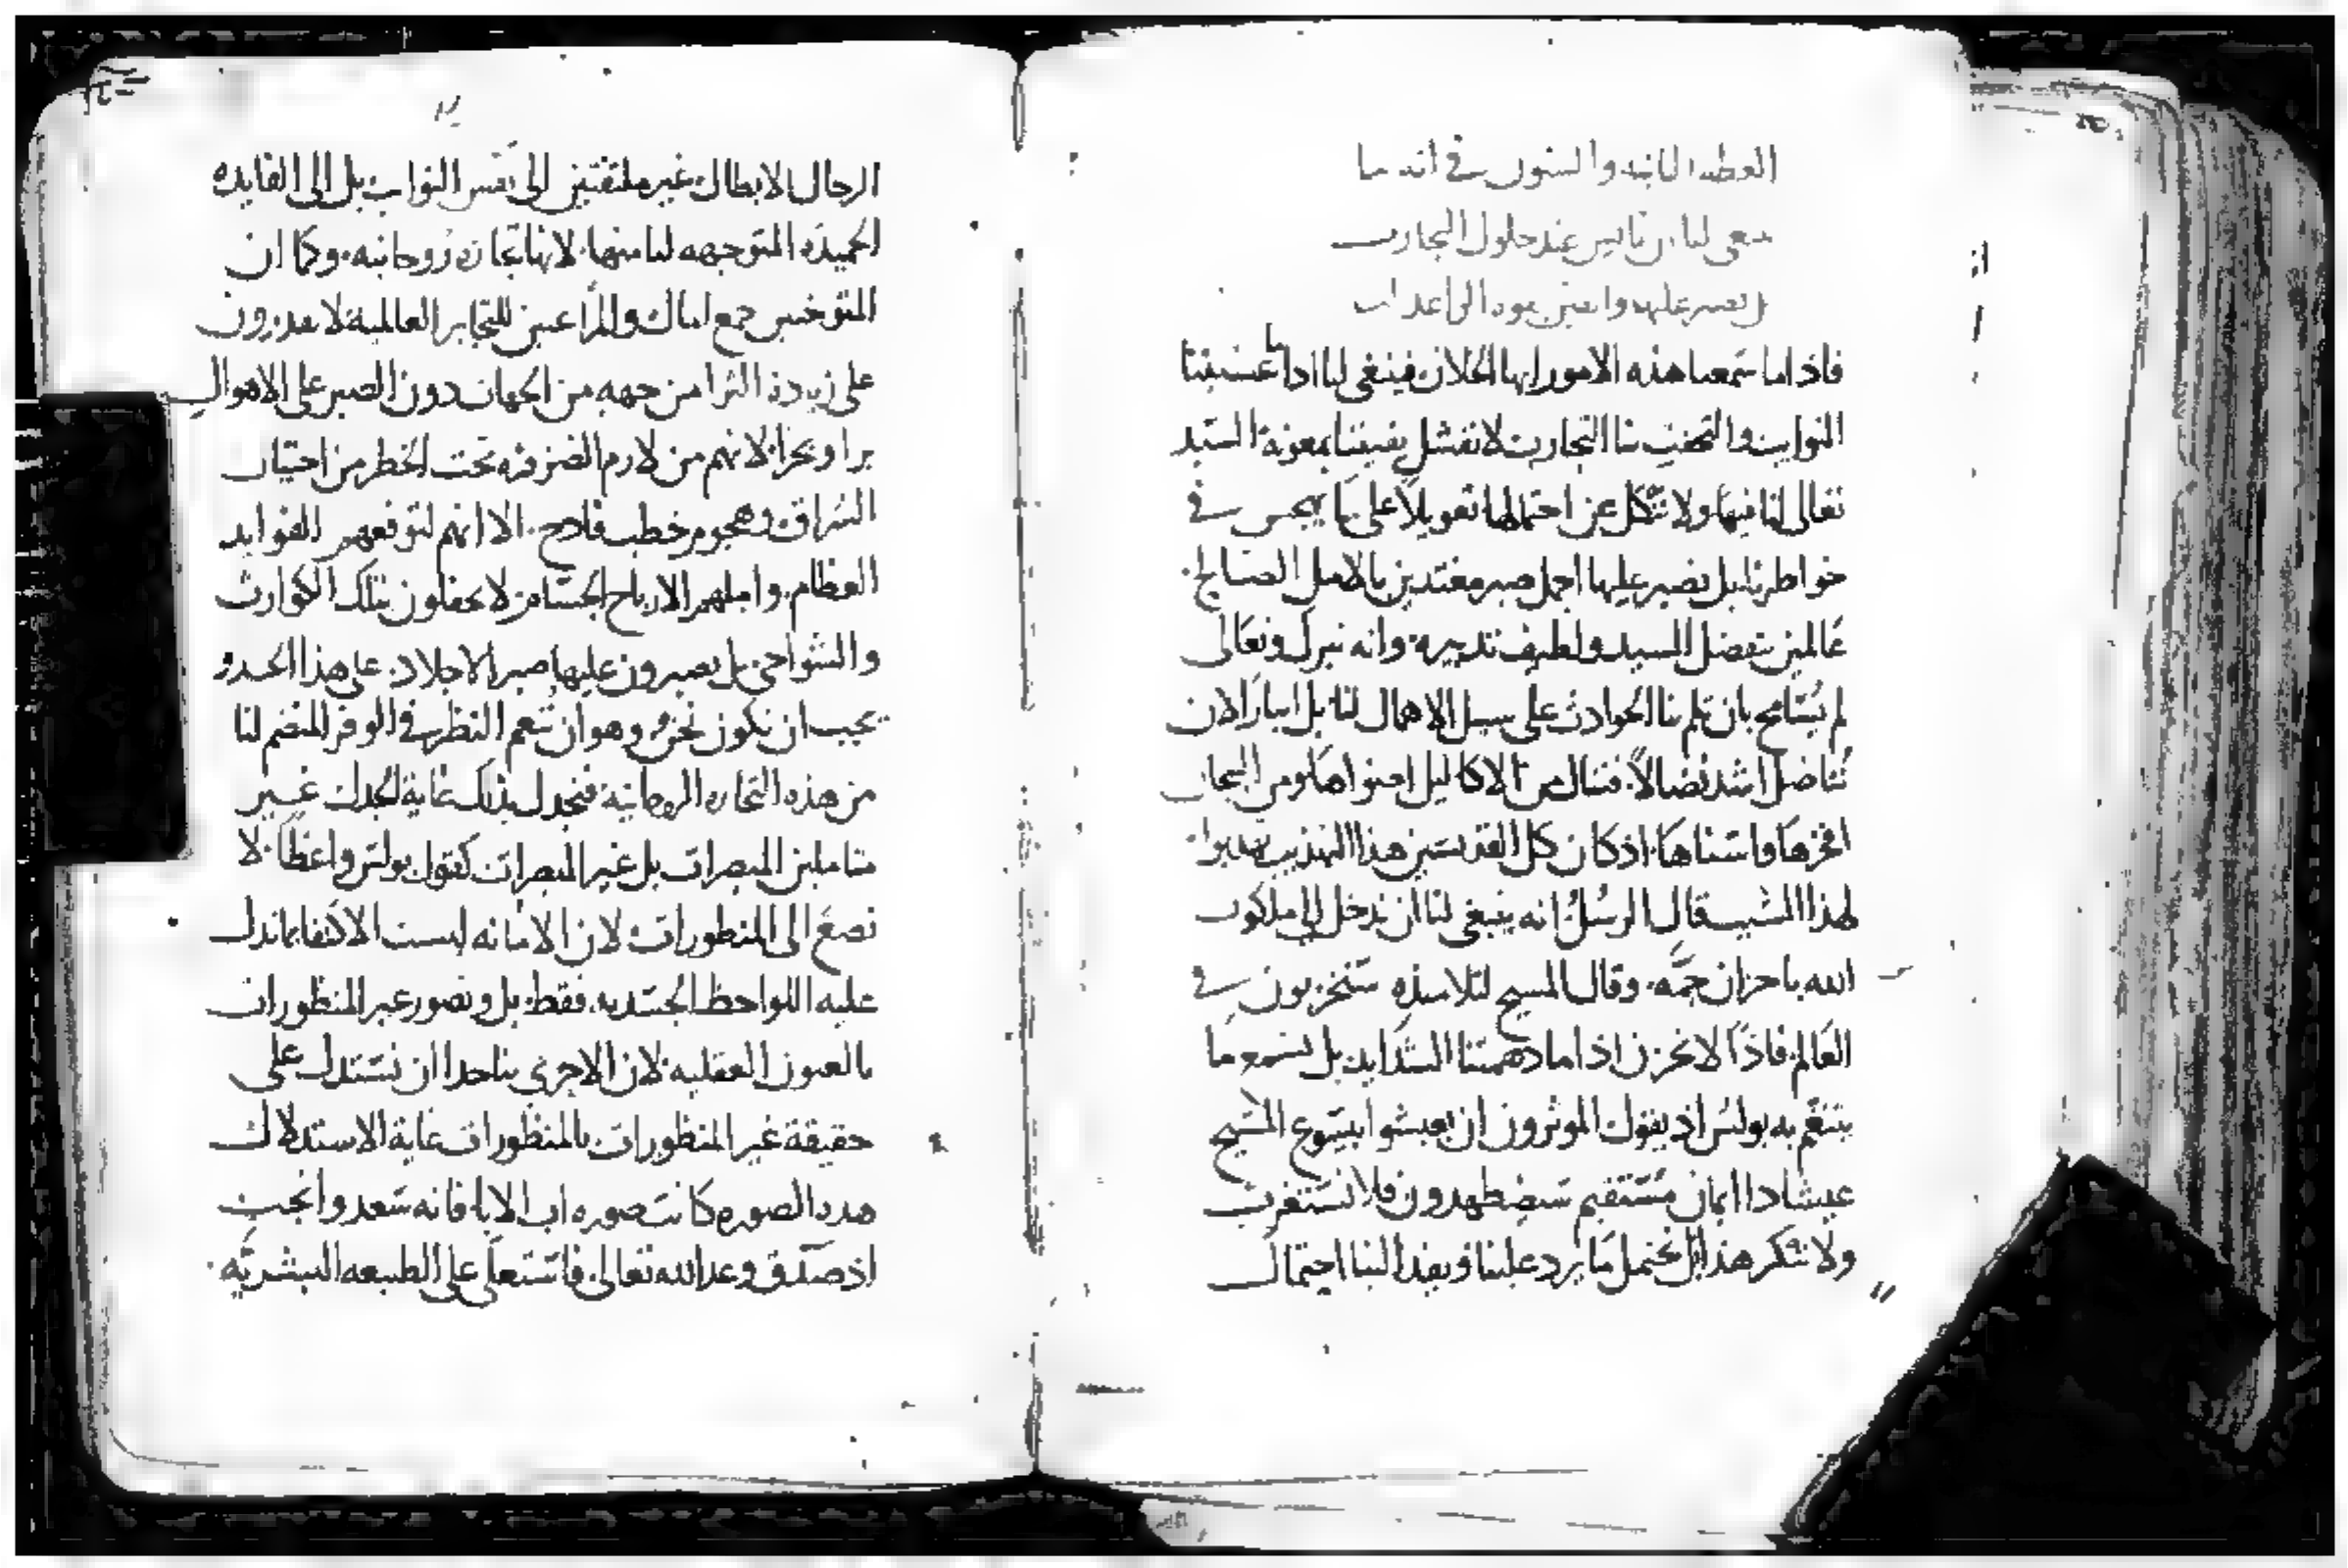 العظه الثانيه والستون في انه ما
ينبغي لنا ان نايس عند حلول التجارب
بل نصبر عليها واثقين بمودة الله
فاذ اما سمعنا هذه الامور ايها الخلان فينبغي لنا اذا ما غشيتنا
النوايب والتحفت بنا التجارب لا نفشل يقيننا بمعونة السيد
تعالى لنا فيها ولا ننكل عن احتمالها تعويلاً على ما يهجس في
خواطرنا بل نصبر عليها اجمل صبر مغتدين بالامل الصالح
عالمين بتفضل السيد ولطيف تدبيره وانه تبرك وتعالى
لم يُسامح بان تلم بنا الحوادث على سبيل الاهمال لنا بل ايثارًا لان
نُناضل اشد نضالاً فننال من الاكاليل اسنواها ومن التيجان
افخرها واسناها اذ كان كل القديسين هذا التهذيب تهذبوا
لهذا السبب قال الرسُل انه ينبغي لنا ان ندخل الى ملكوت
الله باحزان جمَّه وقال المسيح لتلاميذه ستحزنون في
العالم فاذًا لا نحزن اذا ما دهمتنا الشدايد بل نسمع ما
يتنغّم به بولس اذ يقول الموثرون ان يعيشوا بيسوع المسيح
عيشا ذا ايمان مستقيم سيضطهدون فلا نستغرب
ولا ننكر هذا بل نحتمل ما يرد علينا ويفد الينا احتمال
الرجال الابطال غير ملتفتين الى نفس النوايب بل الى الفايده
الحميده المتوجهه لنا منها لانها تجارة روحانيه وكما ان
المتوخين جمع المال والمراعين للمتجاير العالميه لا يقدرون
على زيادة الثرا من جهه من الجهات دون الصبر على الاهوال
برا وبحرا لانهم من لازم الضروره تحت الخطر من احتيال
السُراق وهجوم خطب فادح الا انهم لتوقعهم الفوايد
العظام واملهم الارباح الجسام لا يحفلون بتلك الكوارث
والنواحي بل يصبرون عليها صبر الاجلاد على هذا الحدو
يجب ان نكون نحن وهو ان نُنعم النظر في الوفر المنضم لنا
من هذه التجاره الروحانيه فنجدل بذلك غاية الجدل غير
متاملين المبصرات بل غير المبصرات كقول بولس واعظا لا
نصغ الى المنظورات لان الامانه ليست الاكتفا بما تدل
عليه اللواحظ الجسديه فقط بل وتصور غير المنظورات
بالعيون العقليه لان الاحرى بنا جدا ان نستدل على
حقيقة غير المنظورات بالمنظورات غاية الاستدلال
هذه الصوره كانت صوره اب الابا فانه سعد وانجب
اذ صدّق وعد الله تعالى فاستعلى على الطبيعه البشريه